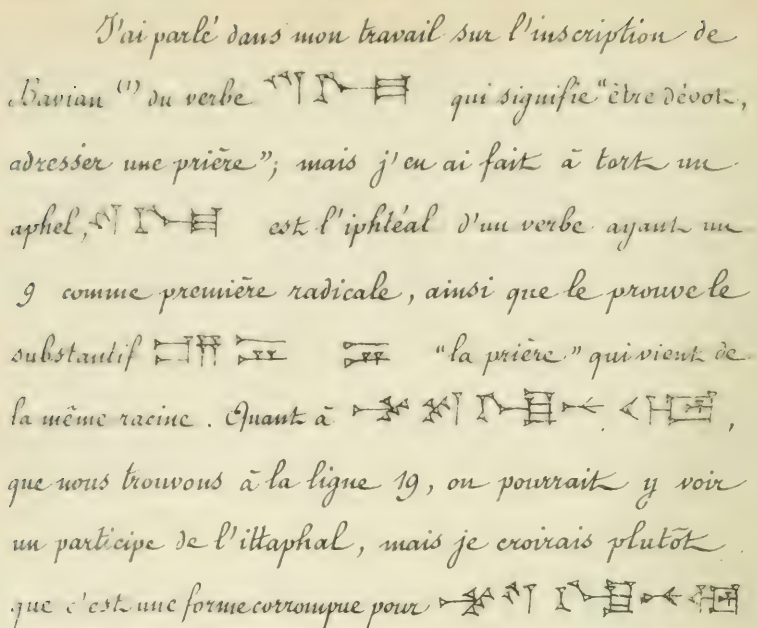 J'ai parlé dans mon travail sur l'inscription de
Bavian (1) du verbe qui signifie "être dévot,
adresser une prière"; mais j'en ai fait à tort un
aphel, est l'iphtéal d'un verbe ayant un
و comme première radicale, ainsi que le prouve le
substantif "la prière" qui vient de
la même racine. Quant à ,
que nous trouvons à la ligne 19, on pourrait y voir
un participe de l'ittaphal, mais je croirais plutôt
que c'est une forme corrompue pour